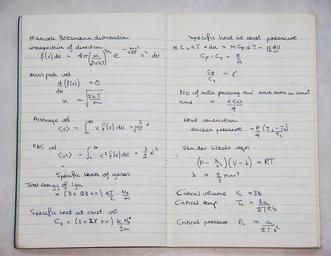 Maxwell Boltzmann distribution
irrespective of direction
f(v) dv = 4π (m/2πkT)^3/2 e^-mv²/2kT v² dv
Most prob vel
d/dv (f(v)) = 0
α = √(2kT/m)
Average vel
<v> = ∫₀^∞ v f(v) dv
RMS vel
<v²> = ∫₀^∞ v² f(v) dv = 3/2 α²
Specific heats of gases
Total energy of 1gm
Specific heat at const. vol
Specific heat at const. pressure
Cp - Cv = R/M
Cp/Cv = γ
No of mols passing thro' unit area in unit
time = n<v>/4
Heat conduction
Van der Waals eqn
(P - a/v²)(V - b) = RT
Critical volume Vc = 3b
Critical temp Tc = 8a/27Rb
Critical pressure Pc = a/27b²